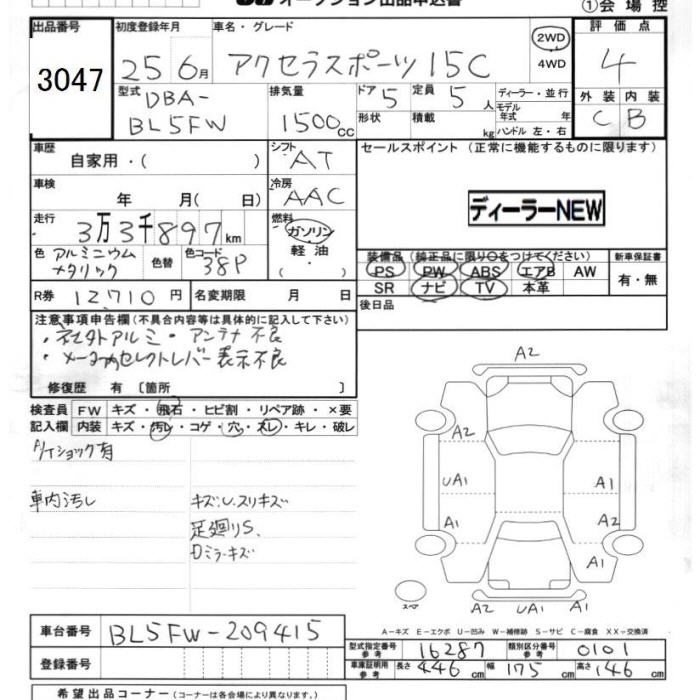 オークション出品申込書
①会場控
出品番号 初度登録年月 車名・グレード 評価点
3047 25 6月 アクセラスポーツ 15C 2WD 4WD 4
型式 排気量 ドア 定員 ディーラー・並行 外装 内装
DBA- BL5FW 1500cc 5 5人 モデル年式 年 C B
形状 積載 kg ハンドル 左・右
車歴 シフト セールスポイント (正常に機能するものに限ります)
自家用・( ) AT
車検 冷房
年 月( 日) AAC
ディーラーNEW
走行 燃料
3万3千897km ガソリン
軽油
・
色 アルミニウムメタリック 色替 色コード 38P
装備品 (純正品に限り○をつけてください) 新車保証書
PS PW ABS エアB AW 有・無
SR ナビ TV 本革
R券 12710円 名変期限 月 日
後日品
注意事項申告欄(不具合内容等は具体的に記入して下さい)
・社外アルミ・アンテナ不良
・セレクトレバー表示不良
修復歴 有 〔箇所 〕
検査員 FW キズ・飛石・ヒビ割・リペア跡・×要
記入欄 内装 キズ・汚レ・コゲ・穴・スレ・キレ・破レ
ショック有
車内汚レ キズ、U、スリキズ
足廻りS、
Dミラーキズ
A2
A2
UA1 A1
A1 A2
A1
A2 UA1 A1
スペア
A−キズ E−エクボ U−凹み W−補修跡 S−サビ C−腐食 XX−交換済
車台番号 BL5FW-209415
登録番号
型式指定番号 参考 16287 類別区分番号 参考 0101
車庫証明用 参考 長さ 446cm 幅 175cm 高さ 146cm
希望出品コーナー (コーナーは各会場により異なります。)